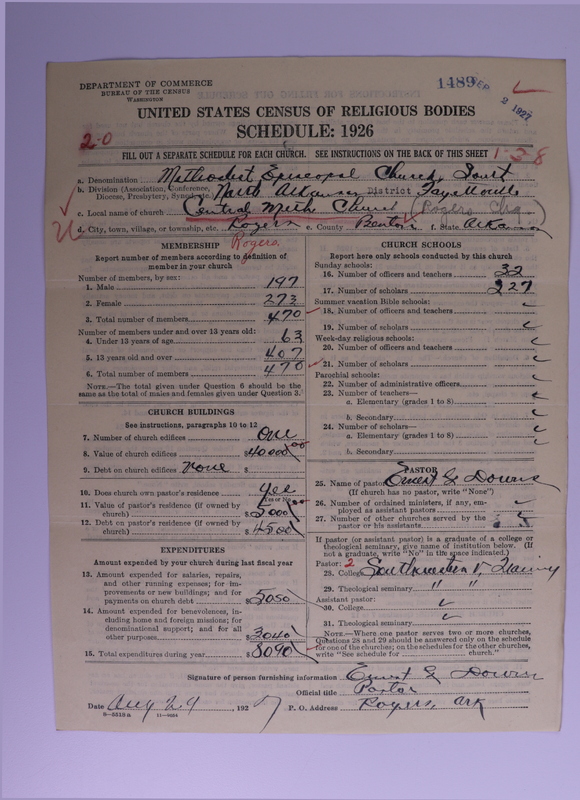 DEPARTMENT OF COMMERCE
BUREAU OF THE CENSUS
WASHINGTON
1489
SEP 2 1927
UNITED STATES CENSUS OF RELIGIOUS BODIES
SCHEDULE: 1926
2-0
FILL OUT A SEPARATE SCHEDULE FOR EACH CHURCH. SEE INSTRUCTIONS ON THE BACK OF THIS SHEET
1-38
a. Denomination Methodist Episcopal Church, South
b. Division (Association, Conference, Diocese, Presbytery, Synod, etc.) North Arkansas District Fayetteville
c. Local name of church Central Meth Church (Rogers Cha.)
d. City, town, village, or township, etc. Rogers e. County Benton f. State Arkansas
Rogers.
MEMBERSHIP
Report number of members according to definition of
member in your church
Number of members, by sex:
1. Male 197
2. Female 273
3. Total number of members 470
Number of members under and over 13 years old:
4. Under 13 years of age 63
5. 13 years old and over 407
6. Total number of members 470
NOTE.—The total given under Question 6 should be the
same as the total of males and females given under Question 3.
CHURCH BUILDINGS
See instructions, paragraphs 10 to 12
7. Number of church edifices One
8. Value of church edifices $40000.00
9. Debt on church edifices None $
10. Does church own pastor's residence Yes
Yes or No
11. Value of pastor's residence (if owned by
church) $5000
12. Debt on pastor's residence (if owned by
church) $4500
EXPENDITURES
Amount expended by your church during last fiscal year
13. Amount expended for salaries, repairs,
and other running expenses; for im-
provements or new buildings; and for
payments on church debt $5050
14. Amount expended for benevolences, in-
cluding home and foreign missions; for
denominational support; and for all
other purposes $3040
15. Total expenditures during year $8090
CHURCH SCHOOLS
Report here only schools conducted by this church
Sunday schools:
16. Number of officers and teachers 32
17. Number of scholars 327
Summer vacation Bible schools:
18. Number of officers and teachers
19. Number of scholars
Week-day religious schools:
20. Number of officers and teachers
21. Number of scholars
Parochial schools:
22. Number of administrative officers
23. Number of teachers—
a. Elementary (grades 1 to 8)
b. Secondary
24. Number of scholars—
a. Elementary (grades 1 to 8)
b. Secondary
PASTOR
25. Name of pastor Ernest G Downs
(If church has no pastor, write "None")
26. Number of ordained ministers, if any, em-
ployed as assistant pastors
27. Number of other churches served by the
pastor or his assistants
If pastor (or assistant pastor) is a graduate of a college or
theological seminary, give name of institution below. (If
not a graduate, write "No" in the space indicated.)
Pastor: 2
28. College Southwestern U,
29. Theological seminary " "
Assistant pastor:
30. College
31. Theological seminary
NOTE.—Where one pastor serves two or more churches,
Questions 28 and 29 should be answered only on the schedule
for one of the churches; on the schedules for the other churches,
write "See schedule for church."
Signature of person furnishing information Ernest G Downs
Official title Pastor
Date Aug 29 1927 P. O. Address Rogers, Ark
8—5518a 11—9284